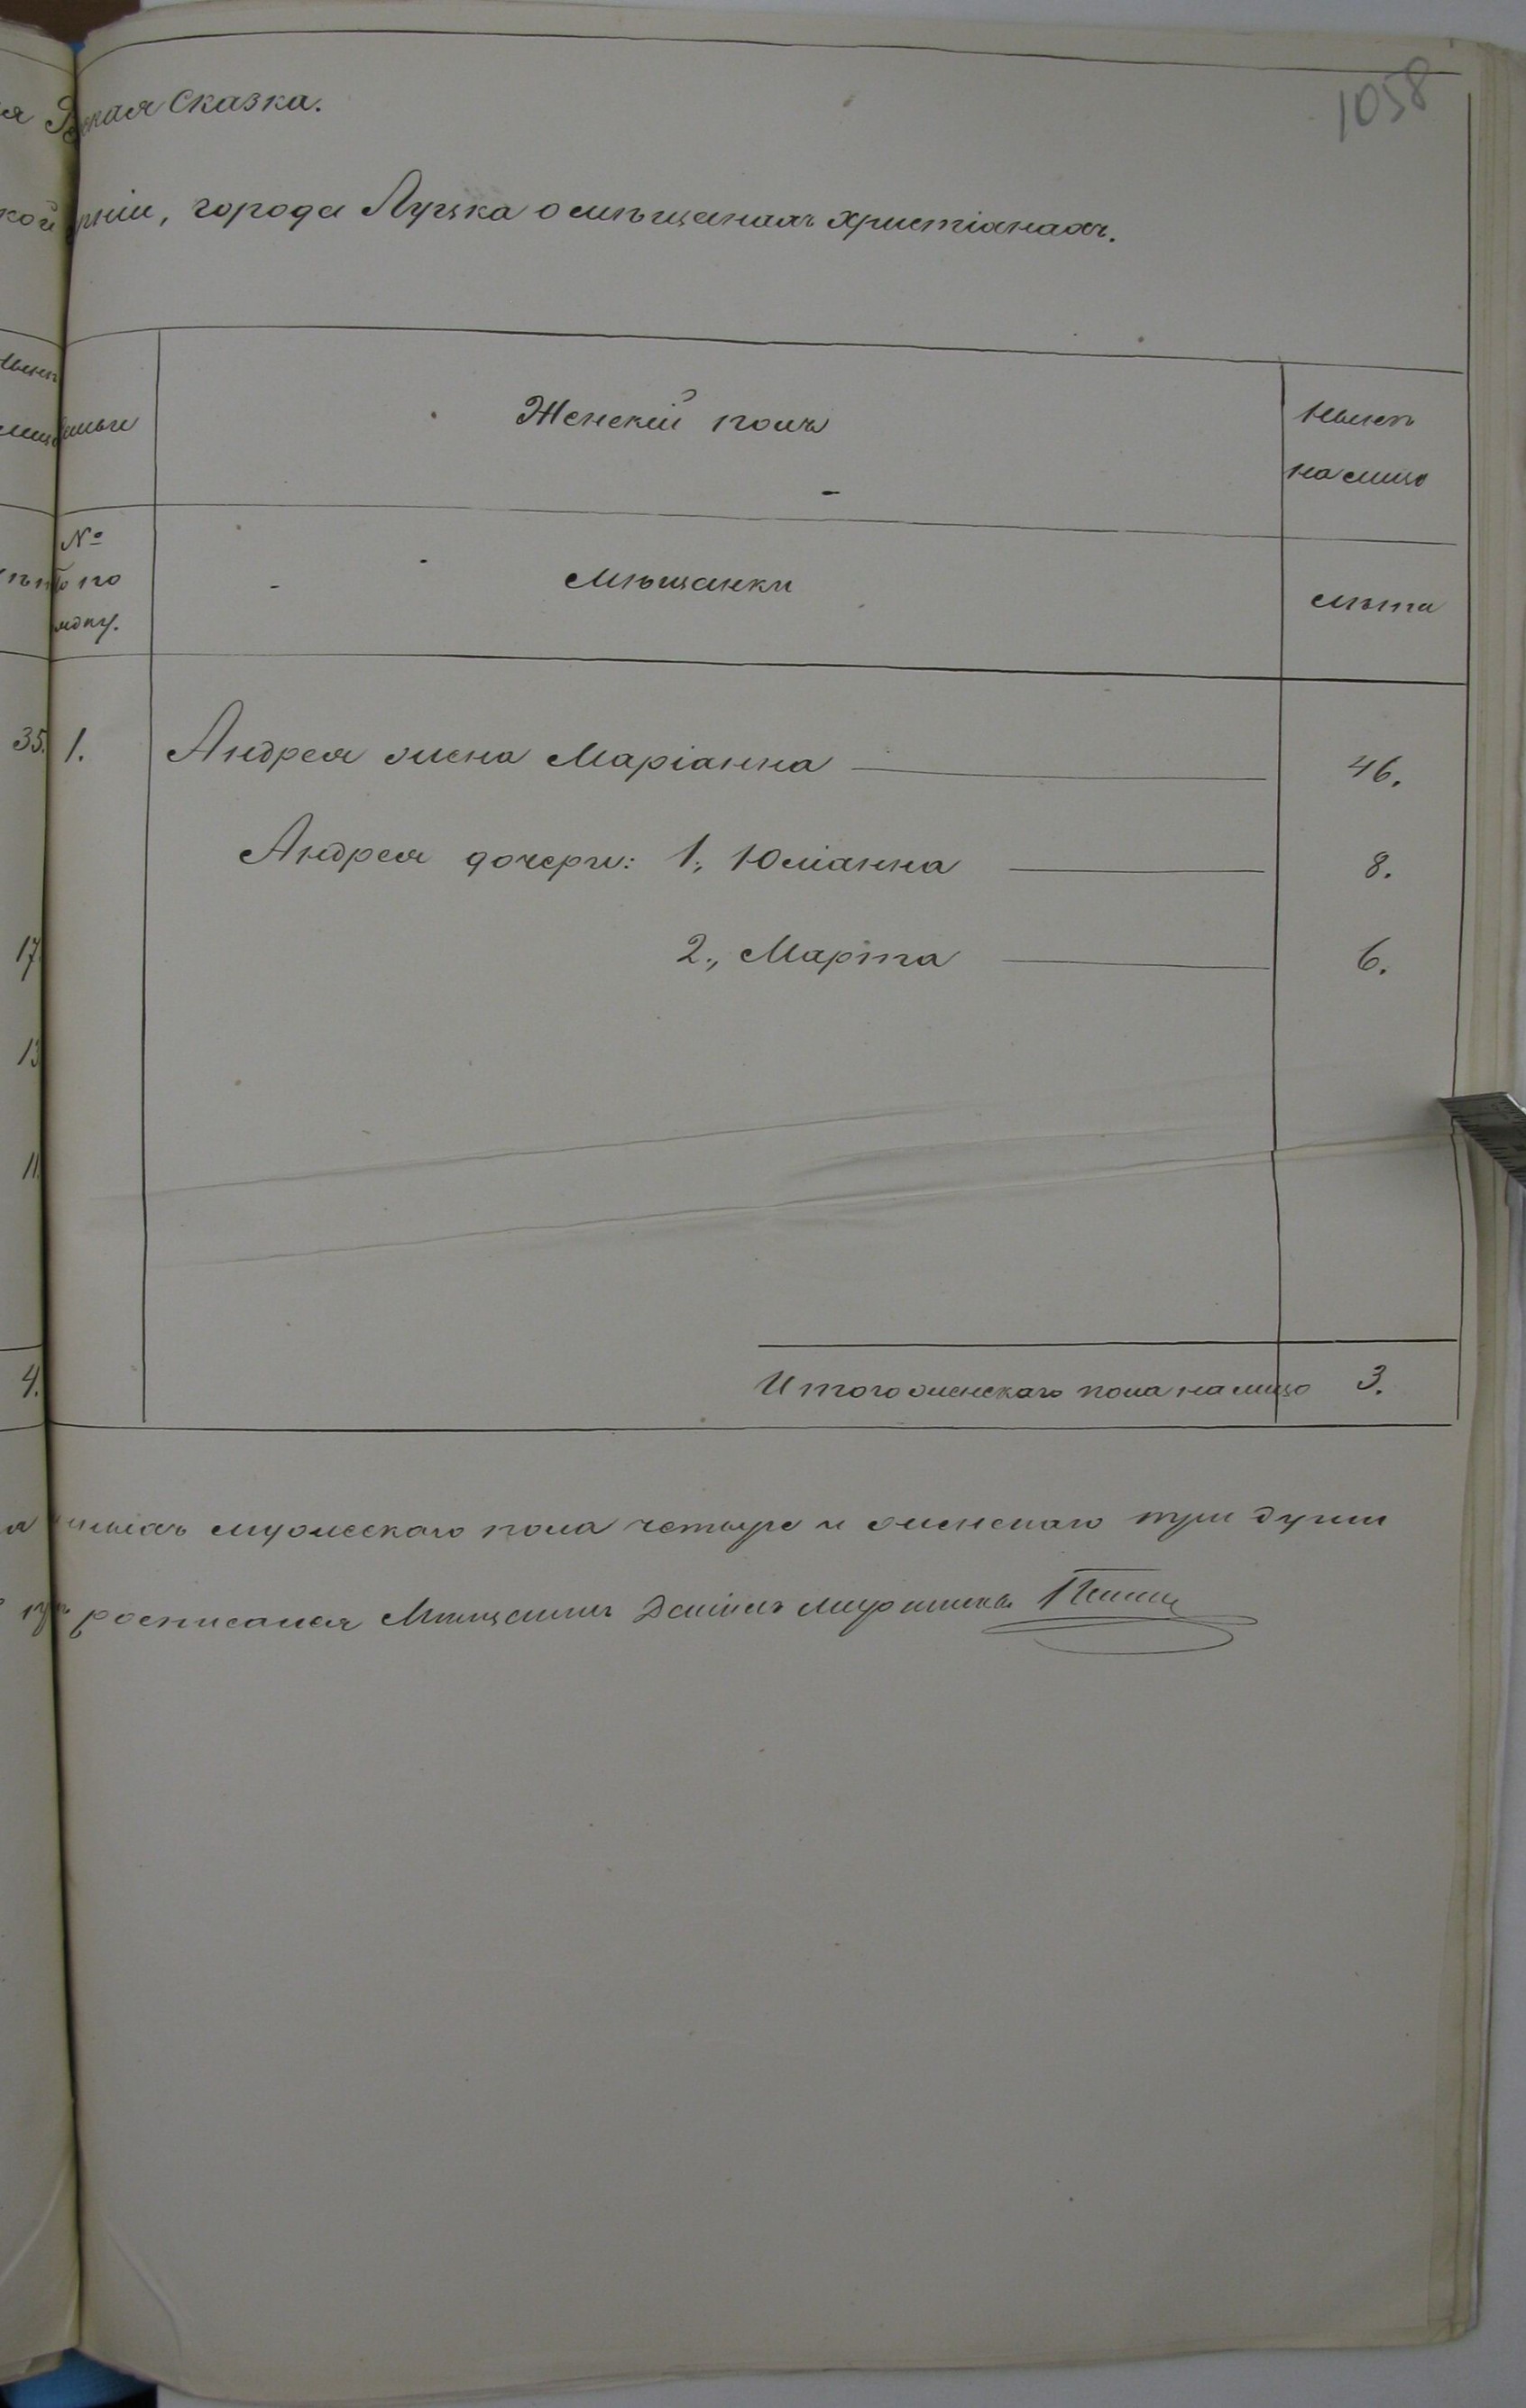 1058
ская Сказка.
рніи, города Луцка о мѣщанахъ христіанахъ.
Женскій полъ
Нынѣ
на лицо
№
по
Мѣщанки
лѣта
35. 1. Андрея жена Маріанна 46.
Андрея дочери: 1., Юліанна 8.
17. 2., Марта 6.
13
11.
Итого женскаго пола на лицо 3.
4.
мужескаго пола четыре и женскаго три души
росписался Мѣщанинъ